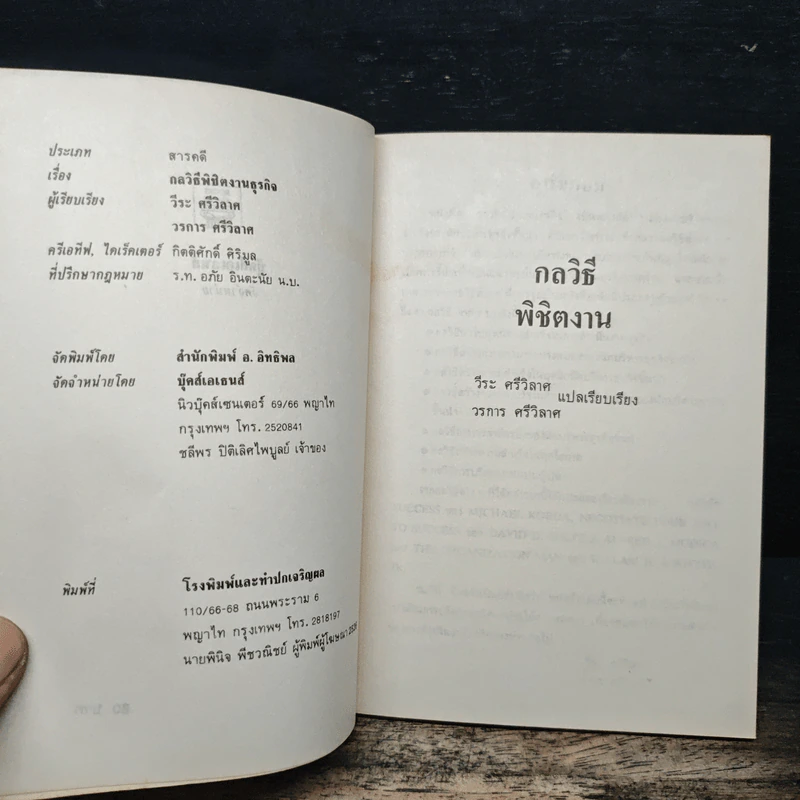 ประเภท สารคดี
เรื่อง กลวิธีพิชิตงานธุรกิจ
ผู้เรียบเรียง วีระ ศรีวิลาศ
วรการ ศรีวิลาศ
ครีเอทีฟ, ไดเร็คเตอร์ กิตติศักดิ์ ศิริมูล
ที่ปรึกษากฎหมาย ร.ท. อภัย อินตะนัย น.บ.
จัดพิมพ์โดย สำนักพิมพ์ อ. อิทธิพล
จัดจำหน่ายโดย บุ๊คส์เอเธนส์
นิวบุ๊คส์เซนเตอร์ 69/66 พญาไท
กรุงเทพฯ โทร. 2520841
ชลีพร ปิติเลิศไพบูลย์ เจ้าของ
พิมพ์ที่ โรงพิมพ์และทำปกเจริญผล
110/66-68 ถนนพระราม 6
พญาไท กรุงเทพฯ โทร. 2818197
นายพินิจ พีชวณิชย์ ผู้พิมพ์ผู้โฆษณา
กลวิธี
พิชิตงาน
วีระ ศรีวิลาศ
วรการ ศรีวิลาศ
แปลเรียบเรียง